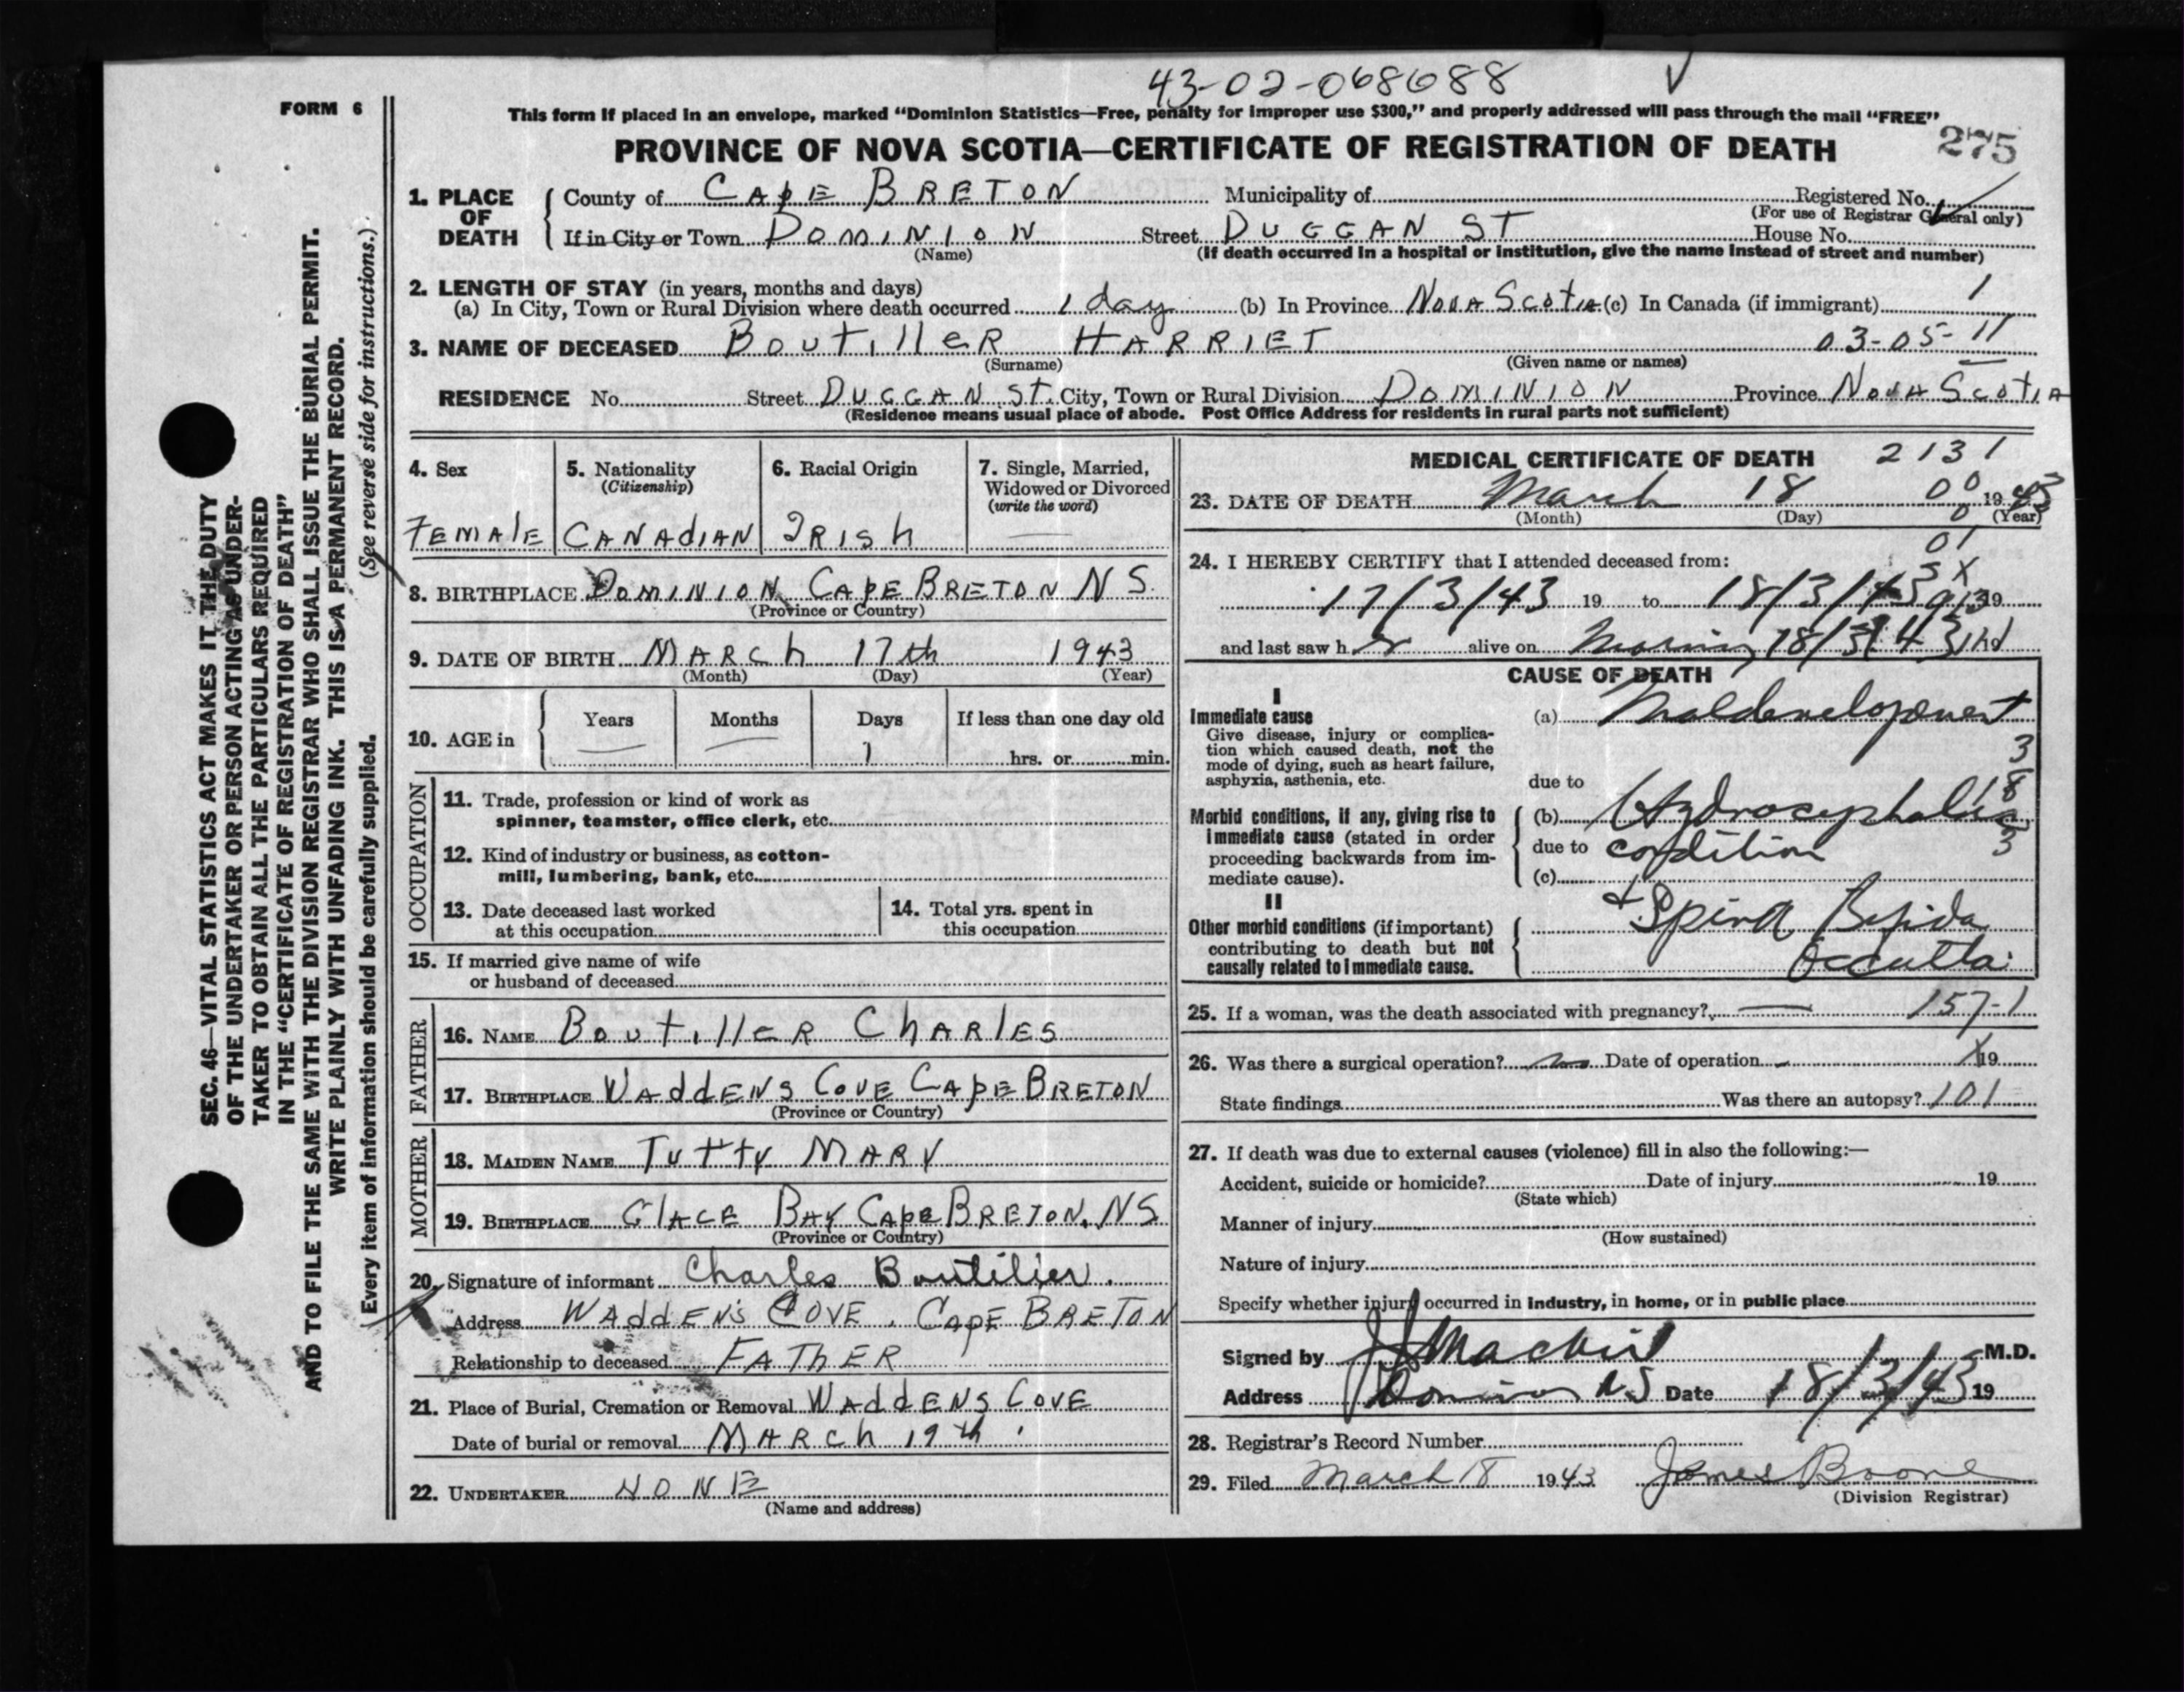 43-02-068688
FORM 6
This form if placed in an envelope, marked "Dominion Statistics—Free, penalty for improper use $300," and properly addressed will pass through the mail "FREE"
PROVINCE OF NOVA SCOTIA—CERTIFICATE OF REGISTRATION OF DEATH
275
1. PLACE OF DEATH
County of CAPE BRETON Municipality of Registered No.
(For use of Registrar General only)
If in City or Town DOMINION Street DUGGAN ST House No.
(Name) (If death occurred in a hospital or institution, give the name instead of street and number)
2. LENGTH OF STAY (in years, months and days)
(a) In City, Town or Rural Division where death occurred 1 day (b) In Province NOVA SCOTIA (c) In Canada (if immigrant) 1
3. NAME OF DECEASED BOUTILLER HARRIET 03-05-11
(Surname) (Given name or names)
RESIDENCE No. Street DUGGAN ST. City, Town or Rural Division DOMINION Province NOVA SCOTIA
(Residence means usual place of abode. Post Office Address for residents in rural parts not sufficient)
4. Sex
FEMALE
5. Nationality
(Citizenship)
CANADIAN
6. Racial Origin
IRISH
7. Single, Married,
Widowed or Divorced
(write the word)
8. BIRTHPLACE DOMINION CAPE BRETON NS.
(Province or Country)
9. DATE OF BIRTH MARCH 17th 1943
(Month) (Day) (Year)
10. AGE in
Years Months Days If less than one day old
1 hrs. or min.
OCCUPATION
11. Trade, profession or kind of work as
spinner, teamster, office clerk, etc.
12. Kind of industry or business, as cotton-
mill, lumbering, bank, etc.
13. Date deceased last worked
at this occupation
14. Total yrs. spent in
this occupation
15. If married give name of wife
or husband of deceased
FATHER
16. NAME BOUTILLER CHARLES
17. BIRTHPLACE WADDENS COVE CAPE BRETON
(Province or Country)
MOTHER
18. MAIDEN NAME TUTTY MARY
19. BIRTHPLACE GLACE BAY CAPE BRETON. NS
(Province or Country)
20. Signature of informant Charles Boutilier.
Address WADDEN'S COVE. CAPE BRETON
Relationship to deceased FATHER
21. Place of Burial, Cremation or Removal WADDENS COVE
Date of burial or removal MARCH 19th
22. UNDERTAKER NONE
(Name and address)
MEDICAL CERTIFICATE OF DEATH 2131
23. DATE OF DEATH March 18 1943
(Month) (Day) (Year)
24. I HEREBY CERTIFY that I attended deceased from:
17/3/43 19 to 18/3/43 19
and last saw h er alive on 18/3/43
CAUSE OF DEATH
I
Immediate cause
Give disease, injury or complica-
tion which caused death, not the
mode of dying, such as heart failure,
asphyxia, asthenia, etc.
(a) Maldevelopment
due to
Morbid conditions, if any, giving rise to
immediate cause (stated in order
proceeding backwards from im-
mediate cause).
(b) Hydrocephalus
due to condition
(c)
II
Other morbid conditions (if important)
contributing to death but not
causally related to immediate cause.
+ Spina Bifida
Occulta
25. If a woman, was the death associated with pregnancy? 157-1
26. Was there a surgical operation? no Date of operation 19
State findings Was there an autopsy? 101
27. If death was due to external causes (violence) fill in also the following:—
Accident, suicide or homicide? Date of injury 19
(State which)
Manner of injury
(How sustained)
Nature of injury
Specify whether injury occurred in industry, in home, or in public place
Signed by M.D.
Address Dominion NS Date 18/3/43 19
28. Registrar's Record Number
29. Filed March 18 1943 James Boone
(Division Registrar)
SEC. 46—VITAL STATISTICS ACT MAKES IT THE DUTY
OF THE UNDERTAKER OR PERSON ACTING AS UNDER-
TAKER TO OBTAIN ALL THE PARTICULARS REQUIRED
IN THE "CERTIFICATE OF REGISTRATION OF DEATH"
AND TO FILE THE SAME WITH THE DIVISION REGISTRAR WHO SHALL ISSUE THE BURIAL PERMIT.
WRITE PLAINLY WITH UNFADING INK. THIS IS A PERMANENT RECORD.
Every item of information should be carefully supplied. (See reverse side for instructions.)